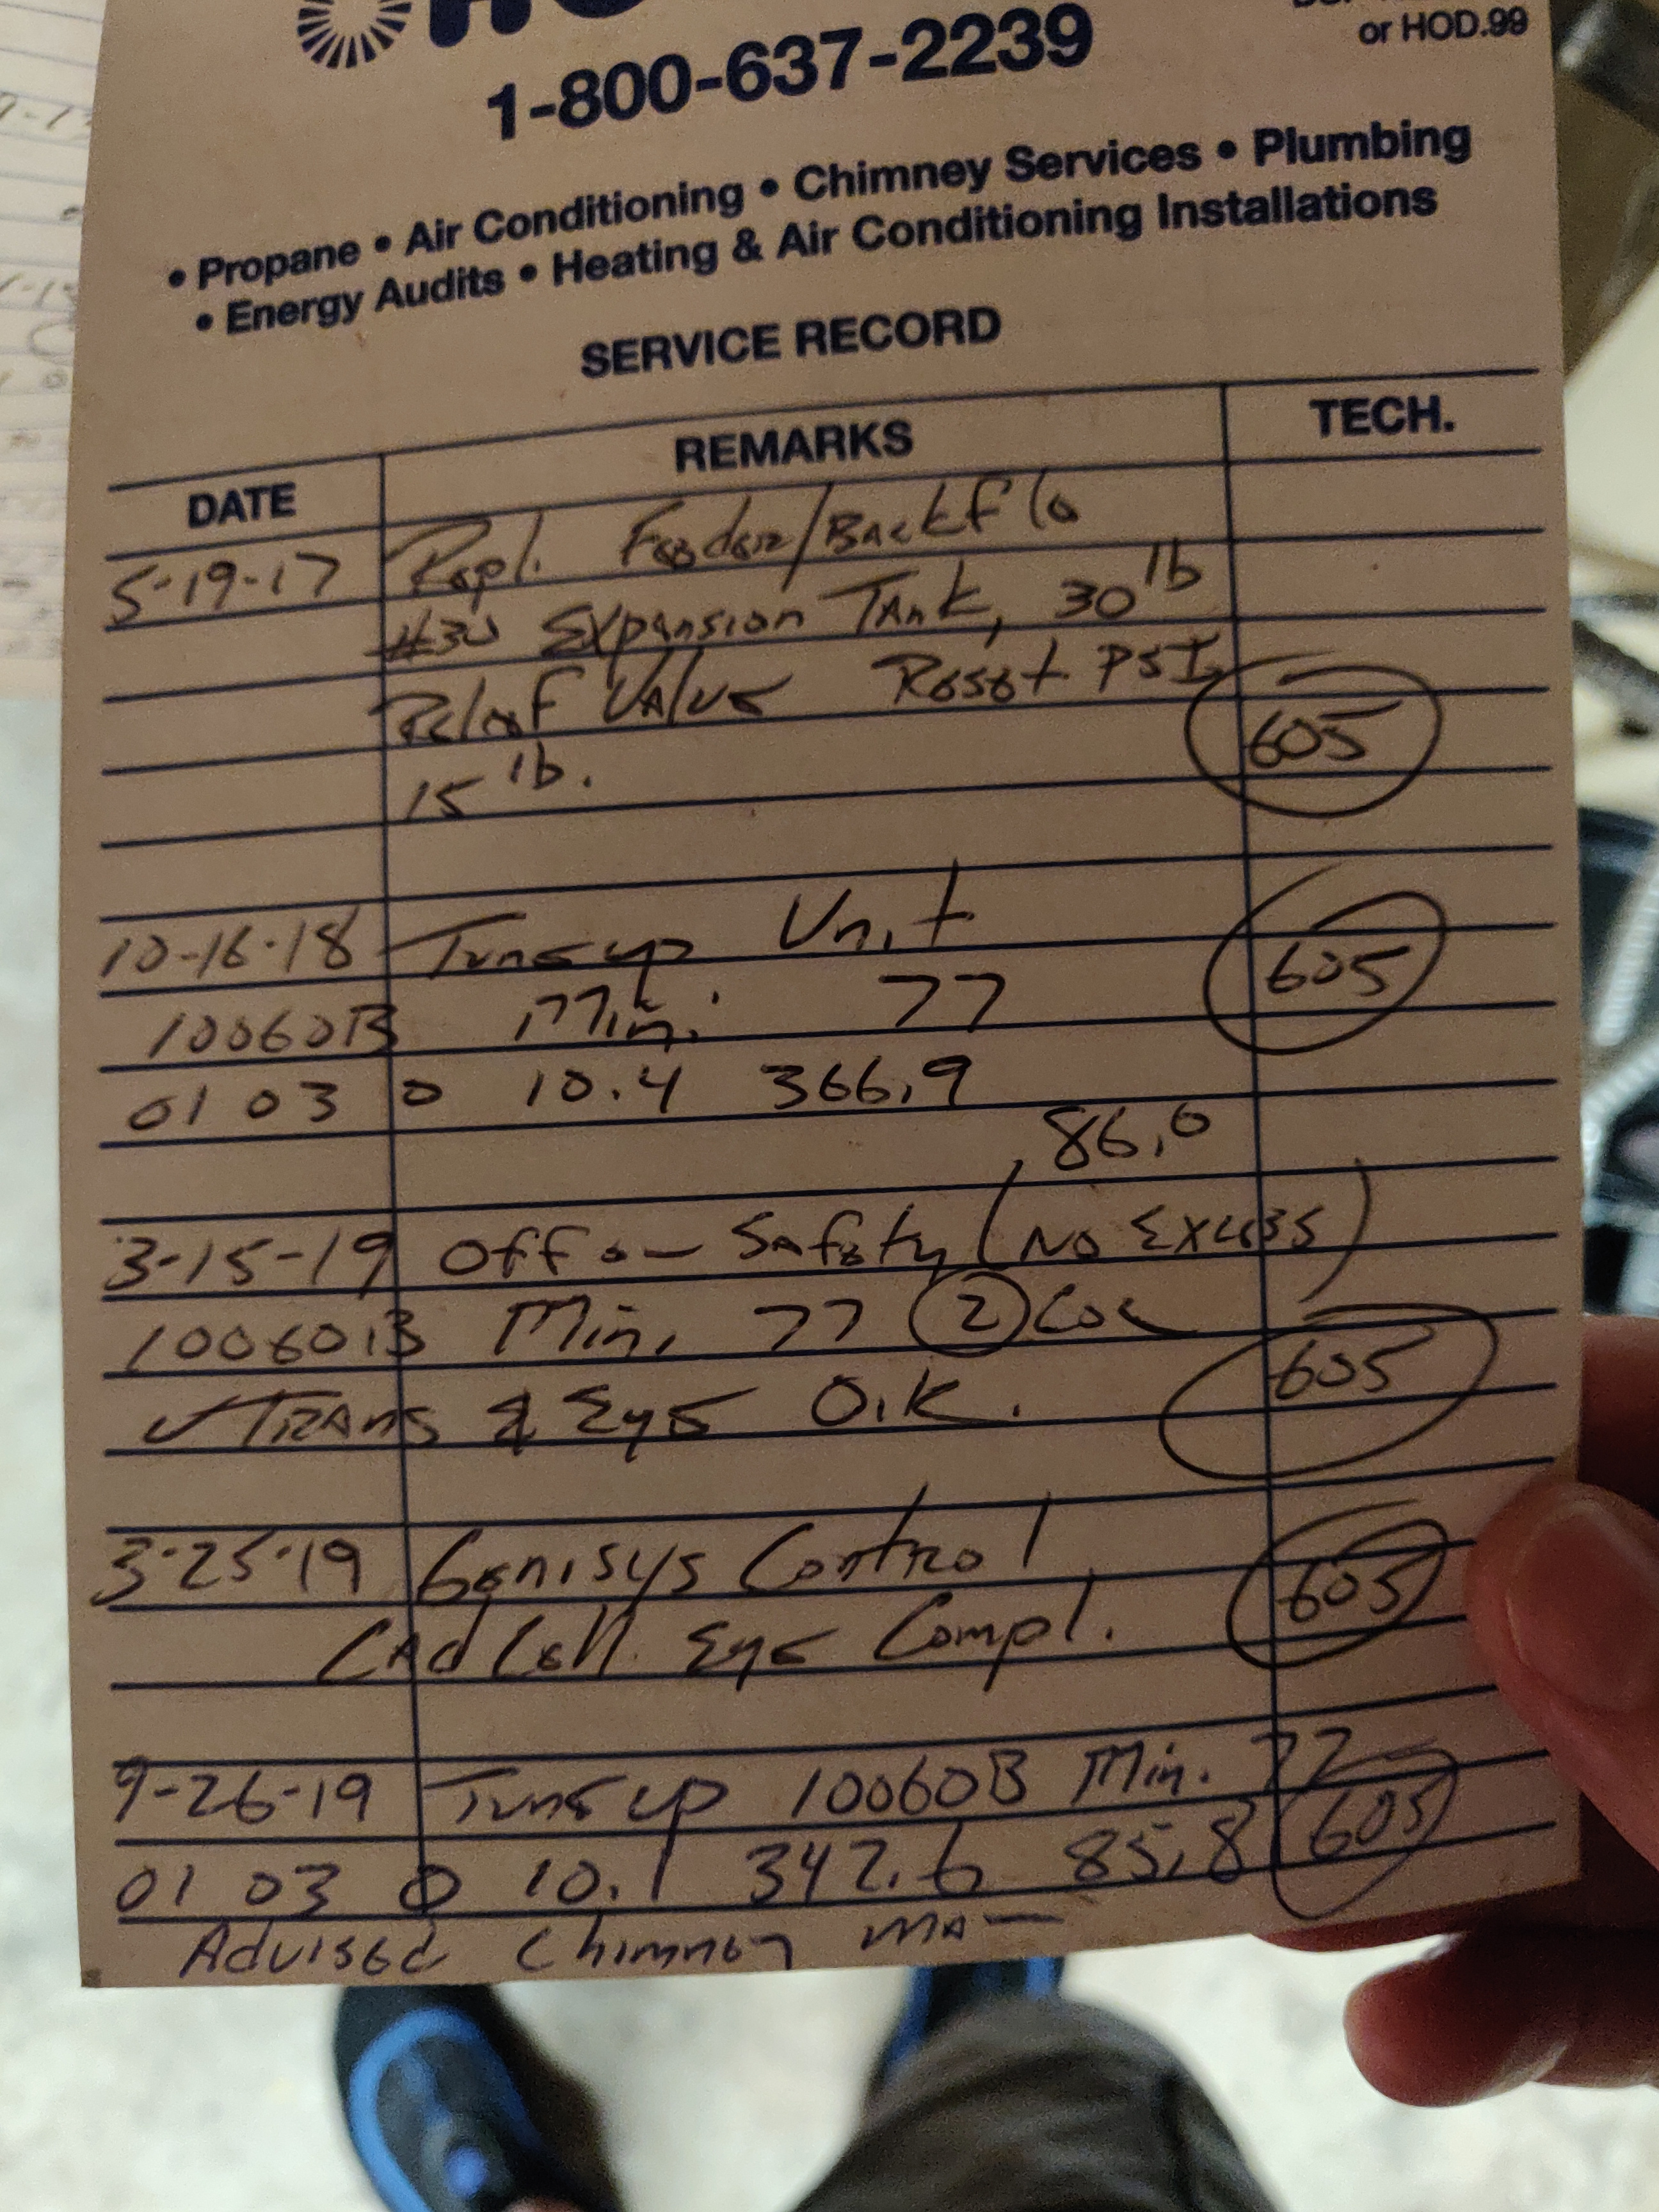 or HOD.99
1-800-637-2239
• Propane • Air Conditioning • Chimney Services • Plumbing
• Energy Audits • Heating & Air Conditioning Installations
SERVICE RECORD
DATE REMARKS TECH.
5-19-17 Repl. Feeder/Backflo
#30 Expansion Tank, 30 lb
Relief Valve Reset PSI
15 lb. 605
10-16-18 Tuneup Unit
10060B Min. 77 605
01 03 0 10.4 366.9
86.0
3-15-19 Off on Safety (No Excess)
10060B Min. 77 2
✓ Trans & Eye O.K. 605
3-25-19 Genisys Control
Cad Cell Eye Compl. 605
9-26-19 Tuneup 10060B Min. 72
01 03 0 10.1 342.6 85.8 605
Advised Chimney